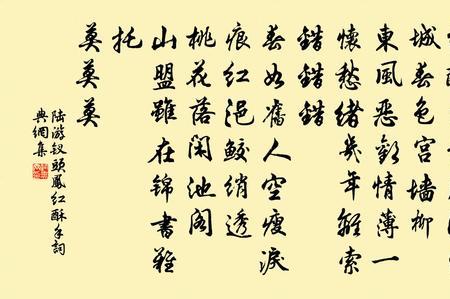 城春色宮墻柳
東風惡歡情薄一
懷愁緒幾年離索
錯錯錯
春如舊人空瘦淚
痕紅浥鮫綃透
桃花落閑池閣
山盟雖在錦書難
托
莫莫莫
陸游釵頭鳳紅酥手詞
典網集